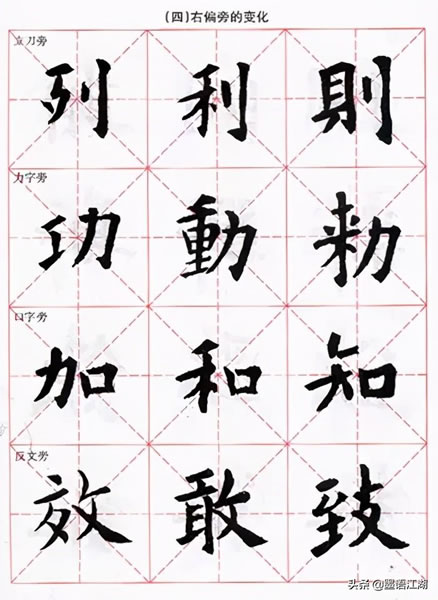 (四)右偏旁的变化
立刀旁
列 利 則
力字旁
功 動 勑
口字旁
加 和 知
反文旁
效 敢 致
头条 @墨语江湖